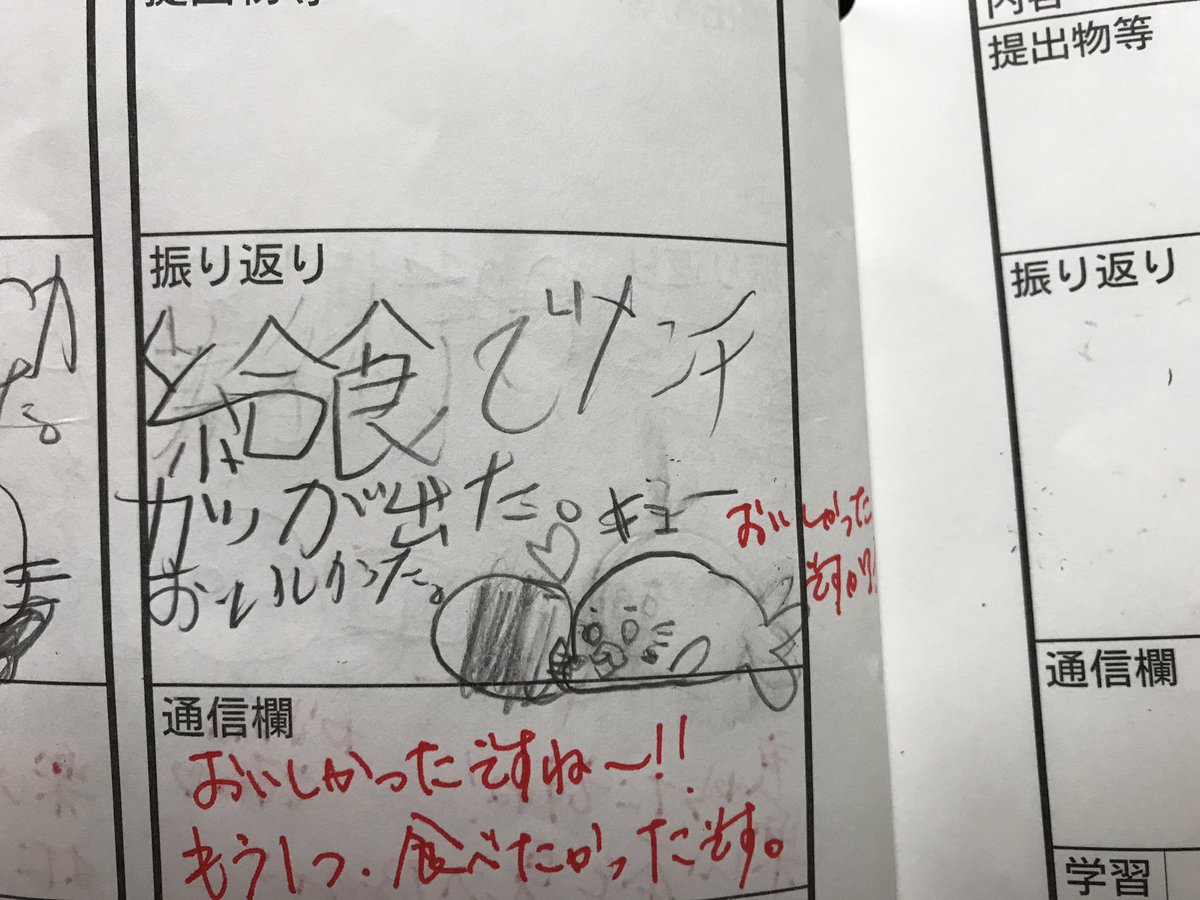 提出物等
振り返り
給食でメンチ
カツが出た。
おいしかった。
キュー
おいしかった
ですか
通信欄
おいしかったですね〜!!
もう1つ、食べたかったです。
内容
提出物等
振り返り
通信欄
学習